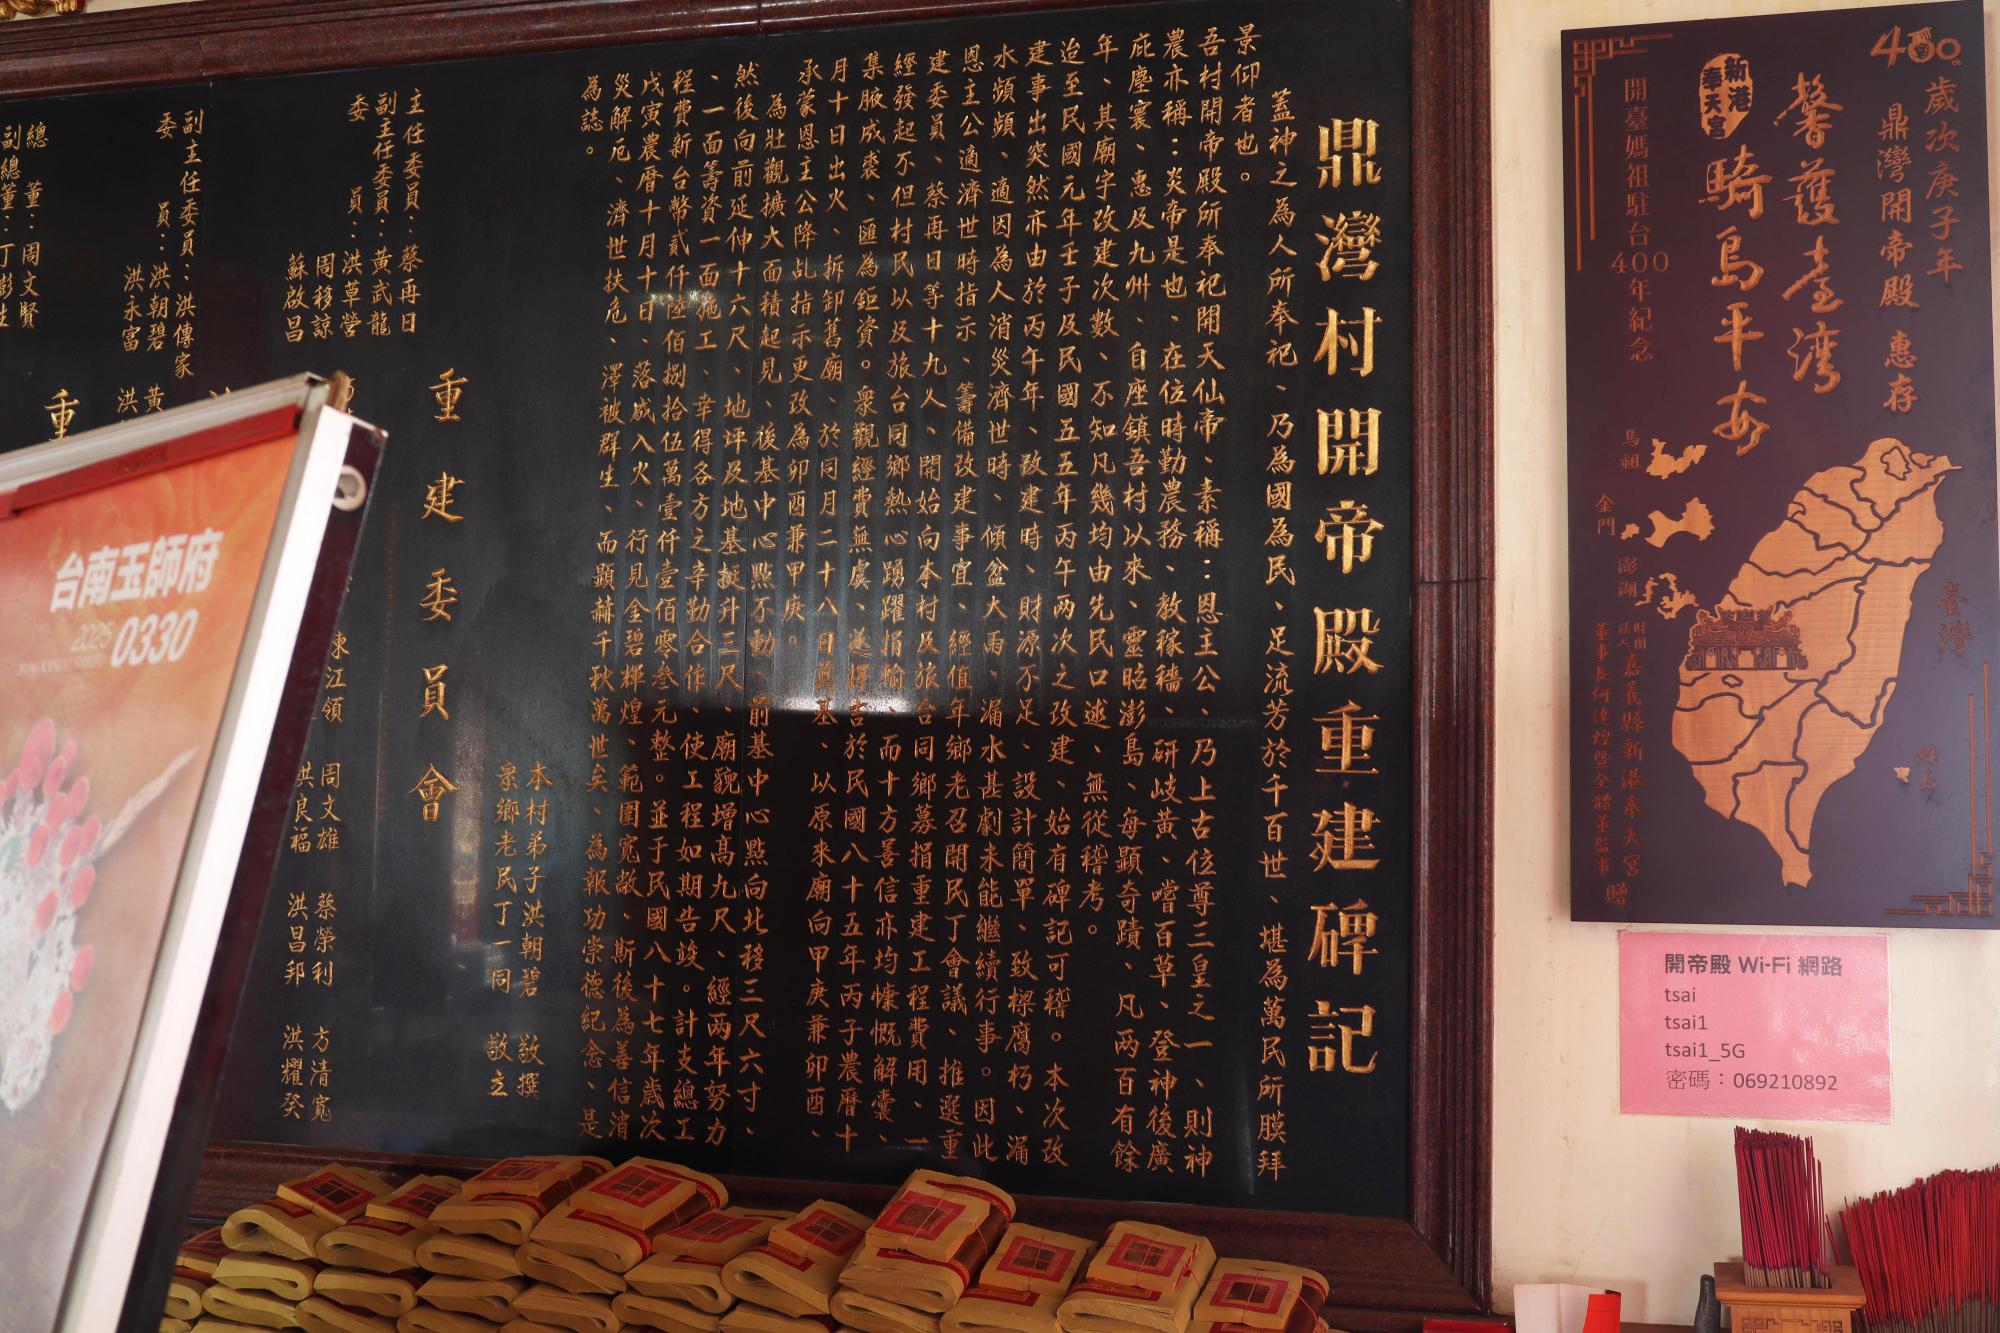 鼎灣村開帝殿重建碑記
蓋神之為人所奉祀、乃為國為民、足流芳於千百世、堪為萬民所膜拜
景仰者也。
吾村開帝殿所奉祀開天仙帝、素稱：恩主公、乃上古位尊三皇之一、則神
農亦稱：炎帝是也、在位時勤農務、教稼穡、研岐黃、嚐百草、登神後廣
庇塵寰、惠及九州、自座鎮吾村以來、靈昭澎島、每顯奇蹟、凡兩百有餘
年、其廟宇改建次數、不知凡幾均由先民口述、無從稽考。
迨至民國元年壬子及民國五五年丙午兩次之改建、始有碑記可稽。本次改
建事出突然亦由於丙午年、改建時、財源不足、設計簡單、致樑腐朽、漏
水頻頻、適因為人消災濟世時、傾盆大雨、漏水甚劇未能繼續行事。因此
恩主公適濟世時指示、籌備改建事宜、經值年鄉老召開民丁會議、推選重
建委員、蔡再日等十九人、開始向本村及旅台同鄉募捐重建工程費用、一
經發起不但村民以及旅台同鄉熱心踴躍捐輸、而十方善信亦均慷慨解囊、
集腋成裘、匯為鉅資。眾觀經費無虞、遂擇吉於民國八十五年丙子農曆十
月十日出火、拆卸舊廟、於同月二十八日奠基、以原來廟向甲庚兼卯酉、
承蒙恩主公降乩指示更改為卯酉兼甲庚。
為壯觀擴大面積起見、後基中心點不動、前基中心點向北移三尺六寸、
然後向前延伸十六尺、地坪及地基提升三尺、廟貌增高九尺、經兩年努力
、一面籌資一面施工、幸得各方之辛勤合作、使工程如期告竣。計支總工
程費新台幣貳仟陸佰捌拾伍萬壹仟壹佰零叁元整。並于民國八十七年歲次
戊寅農曆十月十日、落成入火、行見全碧輝煌、範圍寬敞、斯後為善信消
災解厄、濟世扶危、澤被群生、而顯赫千秋萬世矣、為報功崇德紀念、是
為誌。
本村弟子洪朝碧 敬撰
眾鄉老民丁一同 敬立
重建委員會
主任委員：蔡再日
副主任委員：黃武龍
委員：洪草營
周移諒
蘇啟昌
陳江領 周文雄 蔡榮利 方清寬
洪良福 洪昌邦 洪耀癸
副主任委員：洪傳家
委員：洪朝碧 黃
洪永富 洪
重
總董：周文賢
副總董：丁彭生
台南玉師府
2025 0330
400
歲次庚子年
鼎灣開帝殿 惠存
馨護臺灣
新港奉天宮
騎鳥平安
開臺媽祖駐台400年紀念
馬祖
金門
澎湖
臺灣
綠島
財團法人嘉義縣新港奉天宮
董事長何達煌暨全體董監事 贈
開帝殿 Wi-Fi 網路
tsai
tsai1
tsai1_5G
密碼：069210892